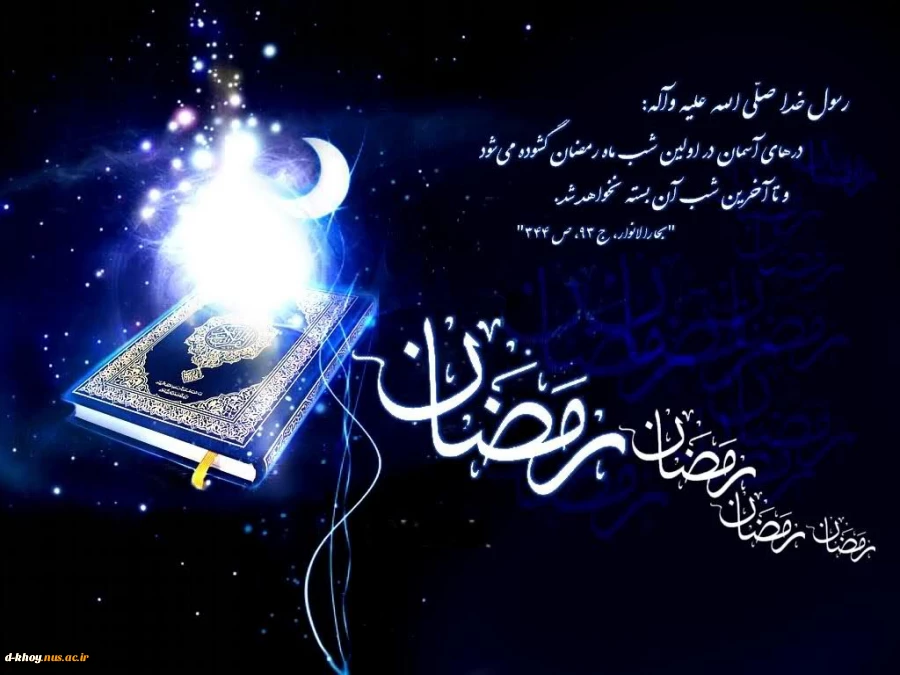 رسول خدا صلّی الله علیه وآله:
درهای آسمان در اولین شب ماه رمضان گشوده می‌شود
و تا آخرین شب آن بسته نخواهد شد.
"بحارالانوار، ج ۹۳، ص ۳۴۴"
رمضان
رمضان
رمضان
رمضان
d-khoy.nus.ac.ir